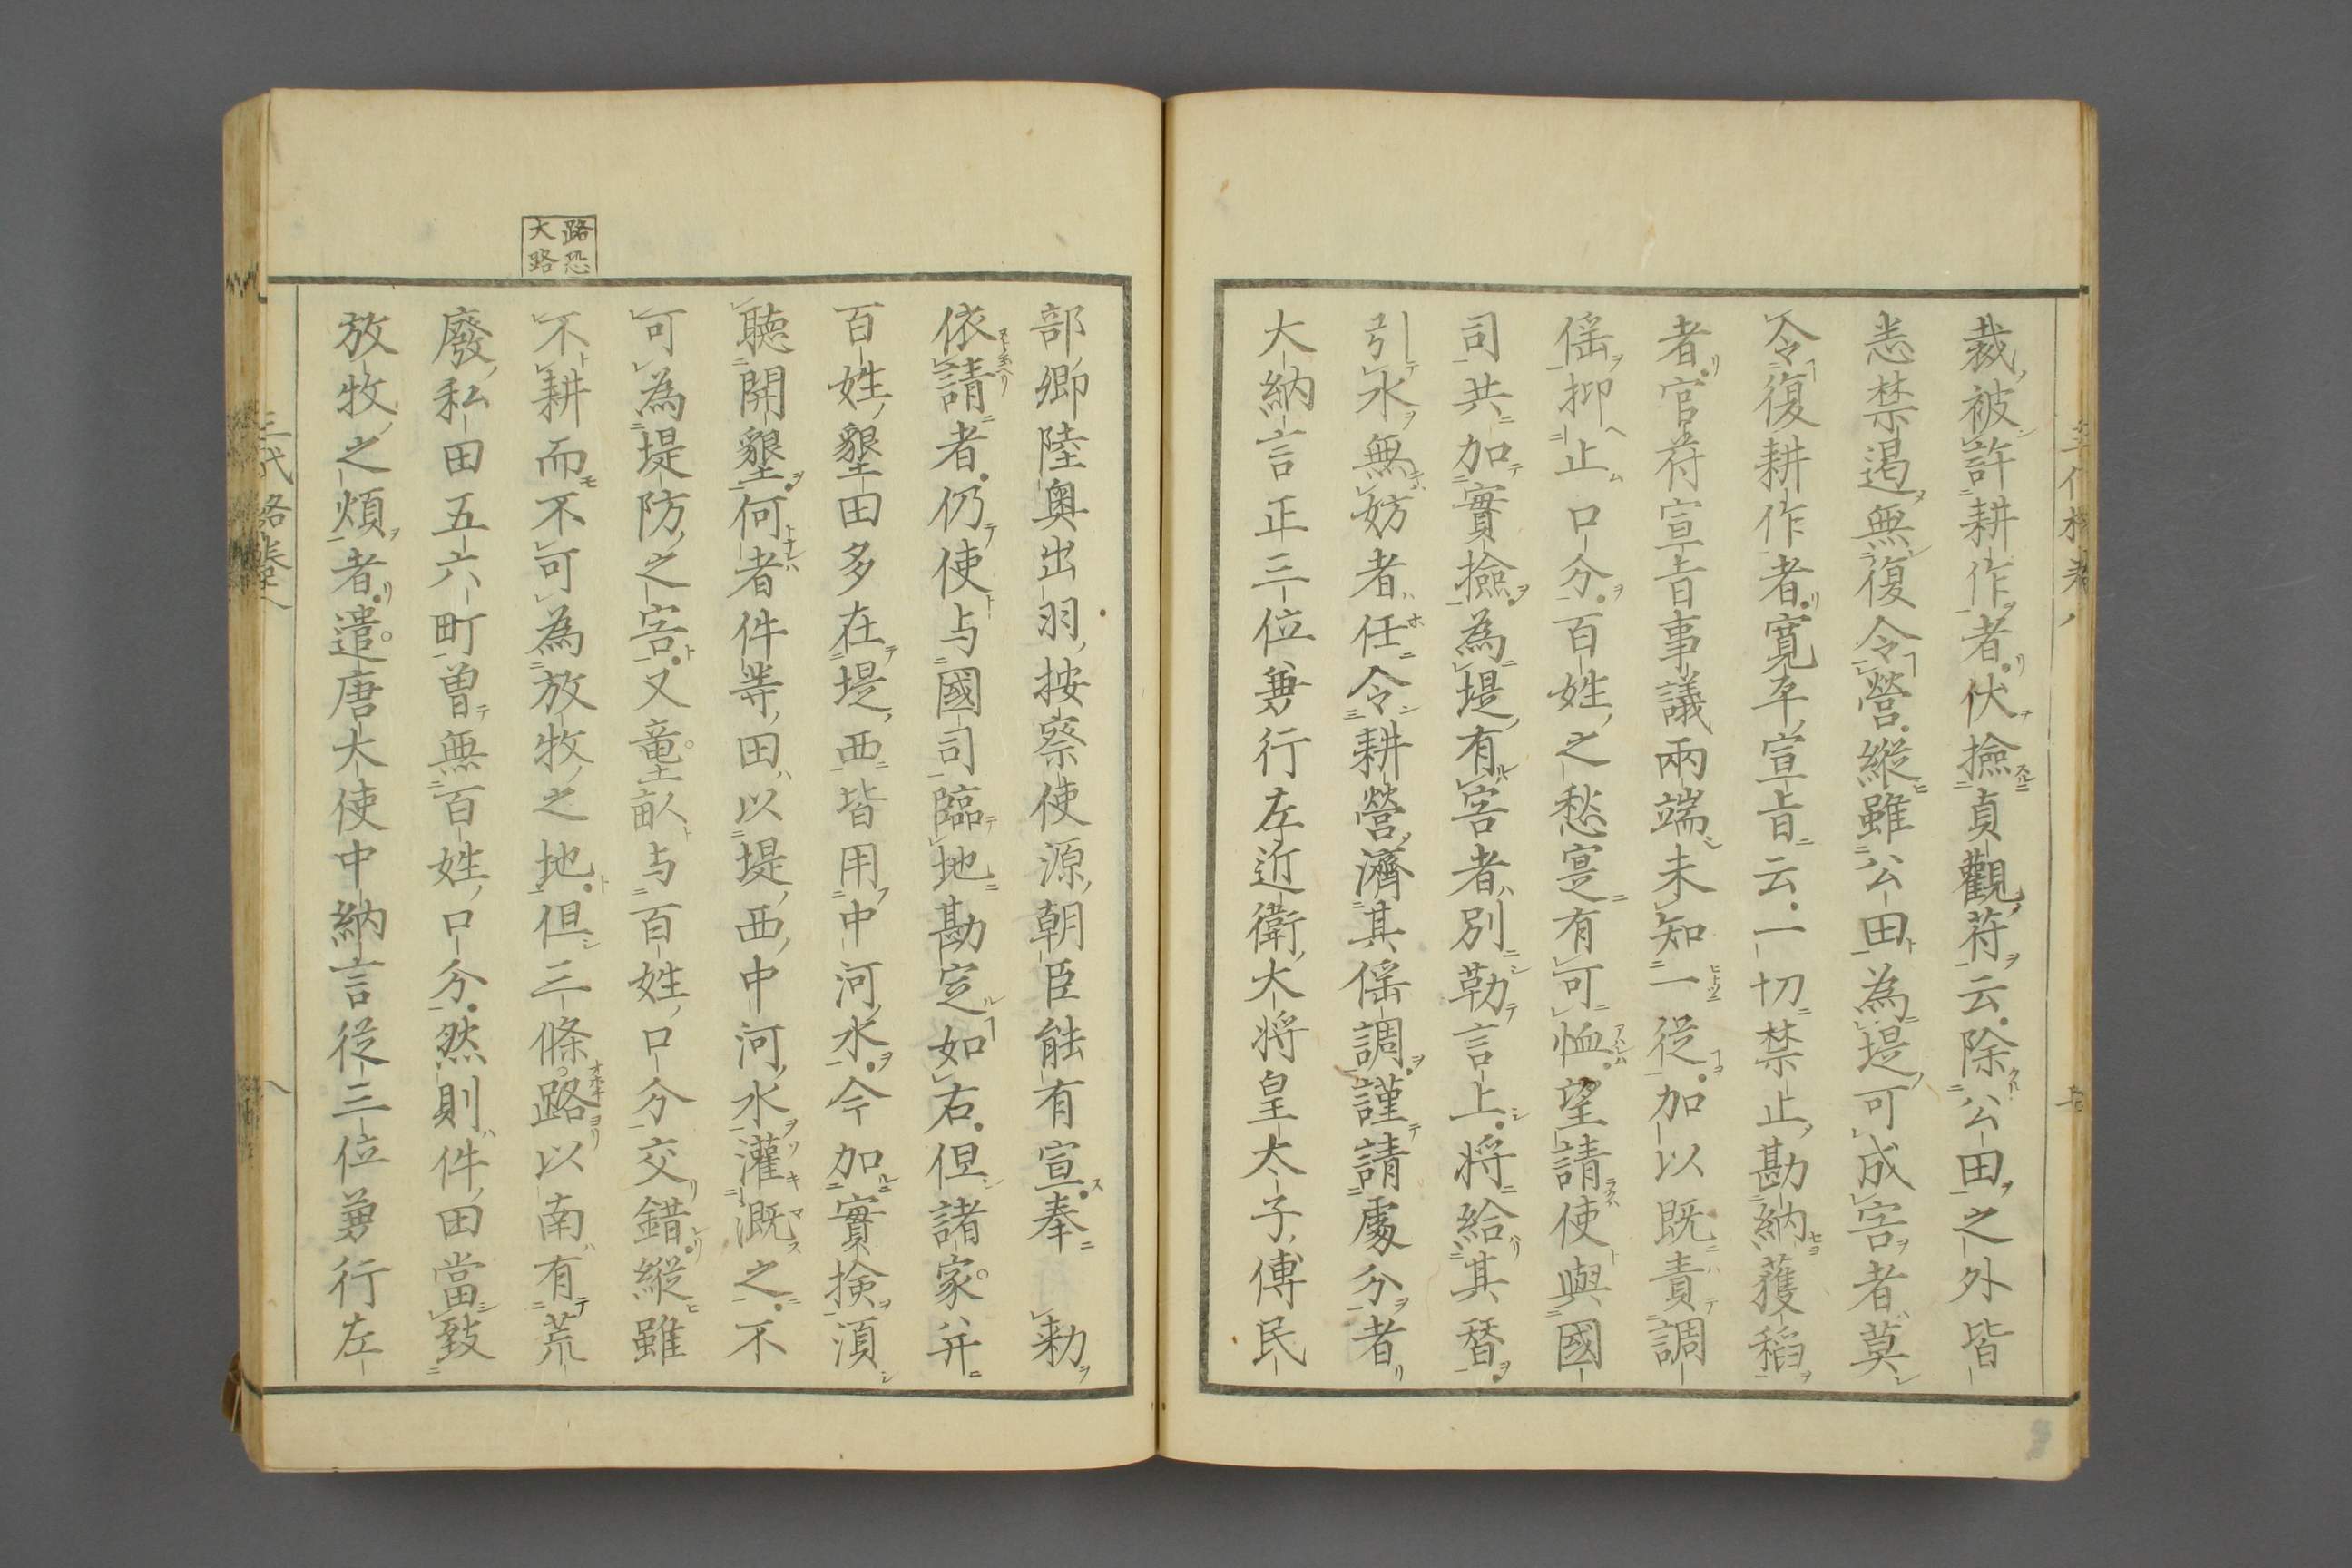 裁被許耕作者伏撿貞觀苻云除公田之外皆
悉禁遏無復令營縱雖公田為堤可成害者莫
令復耕作者寛平宣旨云一切禁止勘納穫稻
者官苻宣旨事議兩端未知一從加以既責調
徭抑止口分百姓之愁寔有可恤望請使與國
司共加實撿為堤有害者別勒言上将給其替
引水無妨者任令耕營濟其徭調謹請處分者
大納言正三位兼行左近衛大将皇太子傅民
部卿陸奥出羽按察使源朝臣能有宣奉　勅
依請者仍使与國司臨地勘定如右但諸家并
百姓墾田多在堤西皆用中河水今加實撿須
聴開墾何者件等田以堤西中河水灌漑之不
可為堤防之害又童畝与百姓口分交錯縱雖
不耕而不可為放牧之地但三條路以南有荒
廢私田五六町曽無百姓口分然則件田當致
放牧之煩者遣唐大使中納言従三位兼行左
路恐
大路